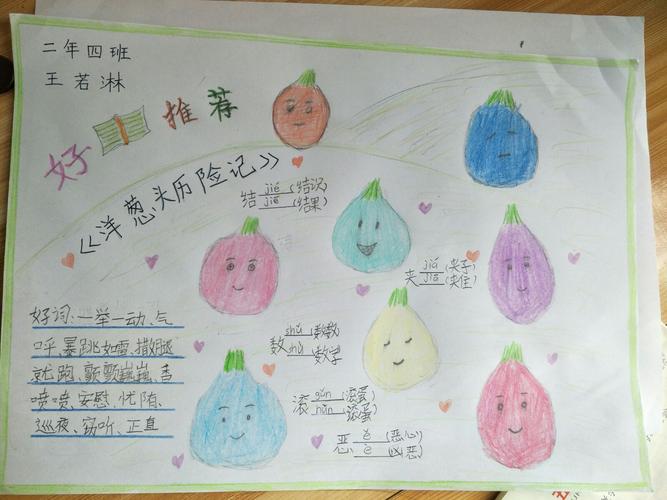 二年四班
王若淋
好 推荐
《洋葱头历险记》
结 jié (结识)
jiē (结果)
夹 jiā (夹子)
jiā (夹住)
数 shǔ (数数)
shù (数字)
滚 gǔn (滚蛋)
(滚蛋)
恶 ě (恶心)
è (凶恶)
好词、一举一动、气
呼、暴跳如雷、撒腿
就跑、颤颤巍巍、香
喷喷、安慰、忧
巡夜、窃听、正直